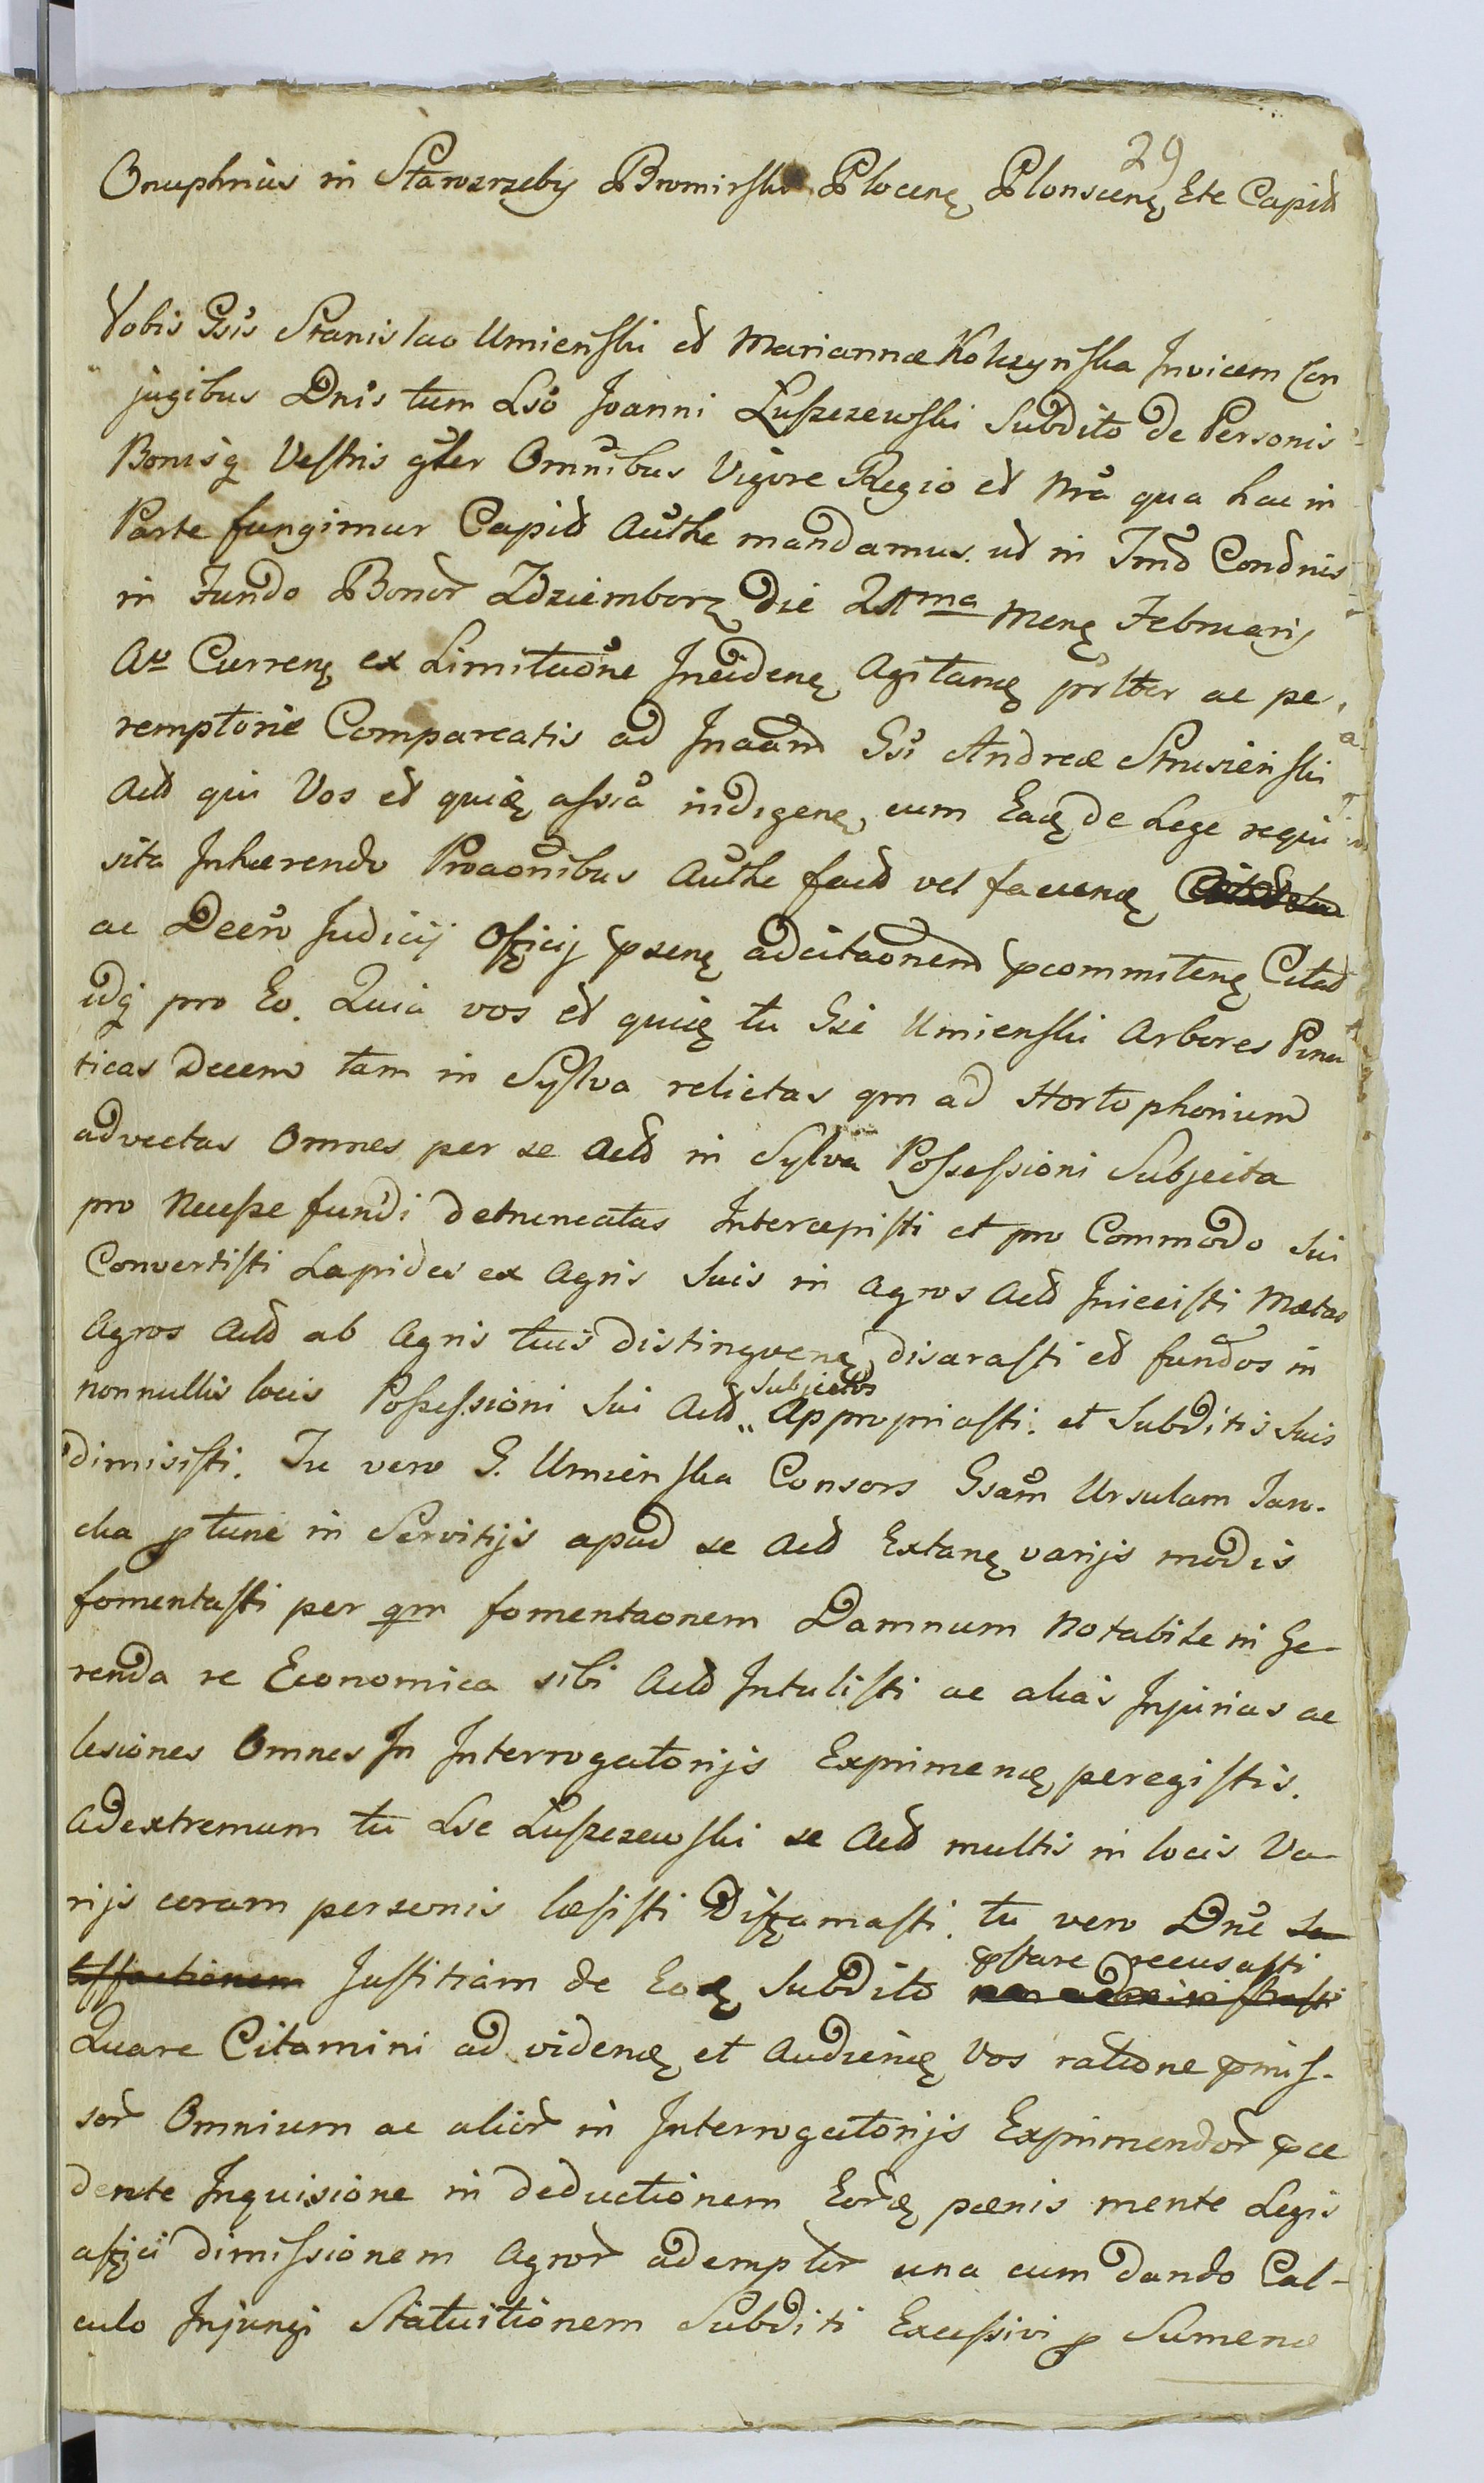 29
Onuphrius in Starozrzeby Bromirski Plocenę Plonscenę Etc Capit̃
Vobis Gsis Stanislao Umienski et Mariannæ Kolczynska Invicem Con
jugibus Dnis tum Lso Joanni Luszczewski Subdito de Personis
Bonisq Vestris gñler Omnibus Vigore Regio et nrã qua hac in
Parte fungimur Capit̃ Authe mandamus. ut in Tmõ Condnis
in Fundo Bonor Zdziemborz die 21ma Menę Februarij
Ao Currenę ex Limitaone Incidenę Agitanę prltter ac pe
remptorie Compareatis ad Inaam Gsi Andreæ Strusienski
Act̃ qui Vos et quiæ assia indigenę, cum Eaę de Lege requi
sita Inhærendo Proaonibus Authe fact̃ vel facienę
ac Decro Judicij Officij pzenę adcitaonem pcommitenę Citat̃
idq pro Eo. Quia vos et quię tu Gse Umienski Arbores Pina
ticas Decem tam in Sylva relictas qm ad Hortophorium
advectas Omnes per se Act̃ in Sylva Possessioni Subjecta
pro Necesse fundi detruncatas Intercepisti et pro Commodo Sui
Convertisti Lapides ex Agris Suis in Agros Act̃ Iniecisti Metas
Agros Act̃ ab Agris tuis distingvenę, disarasti et fundos in
nonnullis locis Possessioni Sui Act̃ Subjectos Appropriasti. et Subditis Suis
dimisisti. Tu vero G. Umienska Consors Gsam Ursulam Jaro-
cka p tunc in Servitijs apud se Act̃ Extanę varijs modis
fomentasti per qm fomentaonem Damnum Notabile in Ge-
renda re Economica sibi Act̃ Intulisti ac alias Injurias ac
lesiones Omnes In Interrogatorijs Exprimenę peregistis.
Adextremum tu Lse Luszczewski se Act̃ multis in locis Va-
rijs coram personis læsisti Diffamasti. tu vero Dne Sa
tisfactionem Justitiam de Eoę Subdito pstare recusasti non administrasti
Quare Citamini ad videnę et Audienę Vos ratione pmis-
sor Omnium ac alior in Interrogatorijs Exprimendor pce
dente Inquisione in deductionem Eorę pænis mente Legis
affici dimissionem Agror ademptor una cum dando Cal-
culo Injungi Statuitionem Subditi Excessivi p Sumenę